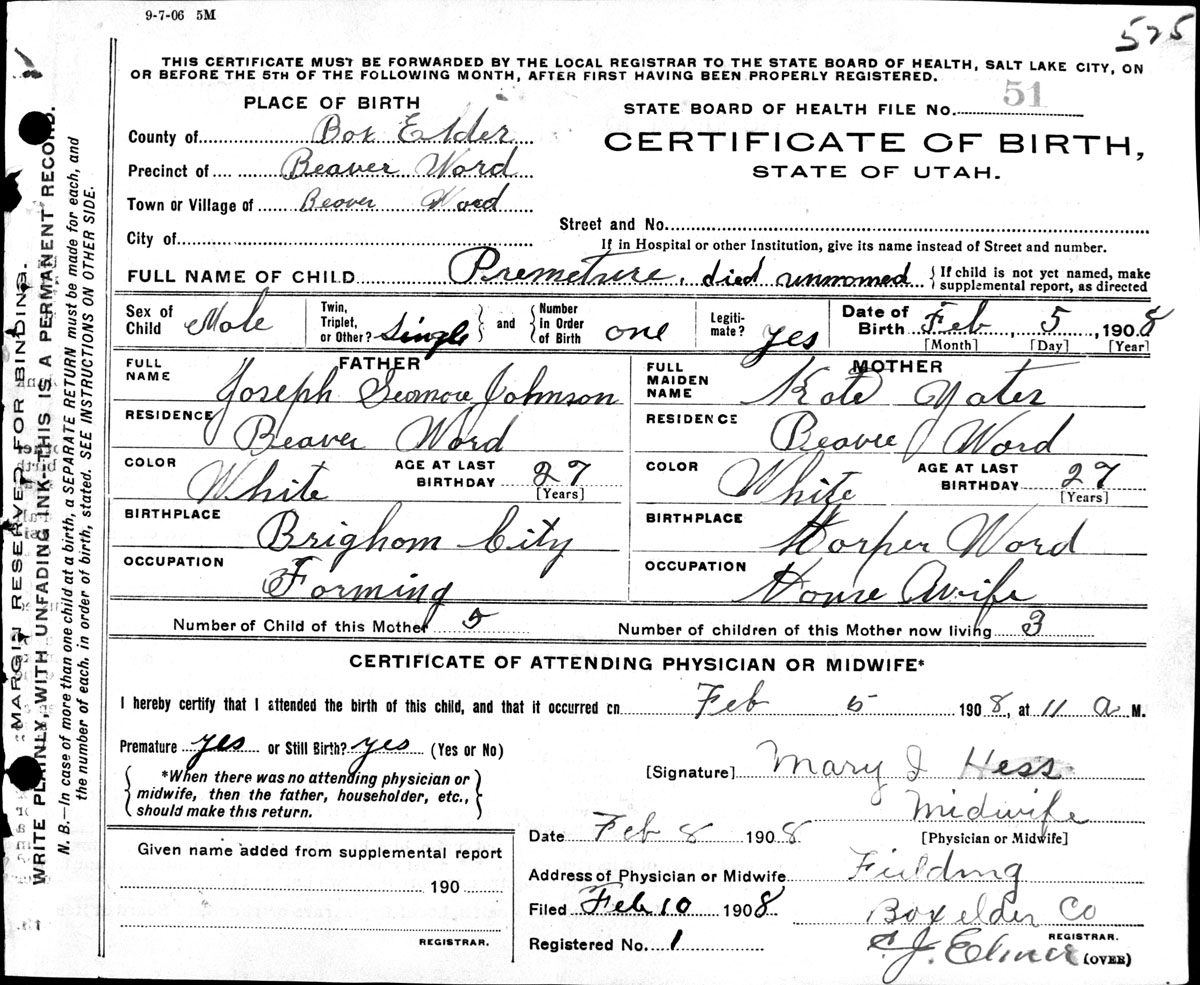 9-7-06 5M
525
THIS CERTIFICATE MUST BE FORWARDED BY THE LOCAL REGISTRAR TO THE STATE BOARD OF HEALTH, SALT LAKE CITY, ON
OR BEFORE THE 5TH OF THE FOLLOWING MONTH, AFTER FIRST HAVING BEEN PROPERLY REGISTERED.
PLACE OF BIRTH
STATE BOARD OF HEALTH FILE No. 51
County of Box Elder
CERTIFICATE OF BIRTH,
Precinct of Beaver Word
STATE OF UTAH.
Town or Village of Beover Word
Street and No.
City of
If in Hospital or other Institution, give its name instead of Street and number.
FULL NAME OF CHILD Premeture, died unnomed { If child is not yet named, make supplemental report, as directed
Sex of Child Mole Twin, Triplet, or Other? Single } and { Number in Order of Birth one Legiti- mate? yes Date of Birth Feb, 5, 1908
[Month] [Day] [Year]
FATHER
MOTHER
FULL NAME Joseph Seamore Johnson
FULL MAIDEN NAME Kate Yates
RESIDENCE Beaver Word
RESIDENCE Beaver Word
COLOR White AGE AT LAST BIRTHDAY 27 [Years]
COLOR White AGE AT LAST BIRTHDAY 27 [Years]
BIRTHPLACE Brighom City
BIRTHPLACE Horper Word
OCCUPATION Forming
OCCUPATION House Wife
Number of Child of this Mother 5 Number of children of this Mother now living 3
CERTIFICATE OF ATTENDING PHYSICIAN OR MIDWIFE*
I hereby certify that I attended the birth of this child, and that it occurred on Feb 5 1908, at 11 a M.
Premature yes or Still Birth? yes (Yes or No)
{ *When there was no attending physician or
midwife, then the father, householder, etc.,
should make this return. }
[Signature] Mary J Hess
Midwife
Date Feb 8 1908 [Physician or Midwife]
Given name added from supplemental report
190
REGISTRAR.
Address of Physician or Midwife Fielding
Filed Feb 10 1908 Box elder Co
Registered No. 1 REGISTRAR.
(OVER)
MARGIN RESERVED FOR BINDING.
WRITE PLAINLY, WITH UNFADING INK-THIS IS A PERMANENT RECORD.
N. B.—In case of more than one child at a birth, a SEPARATE RETURN must be made for each, and
the number of each, in order of birth, stated. SEE INSTRUCTIONS ON OTHER SIDE.